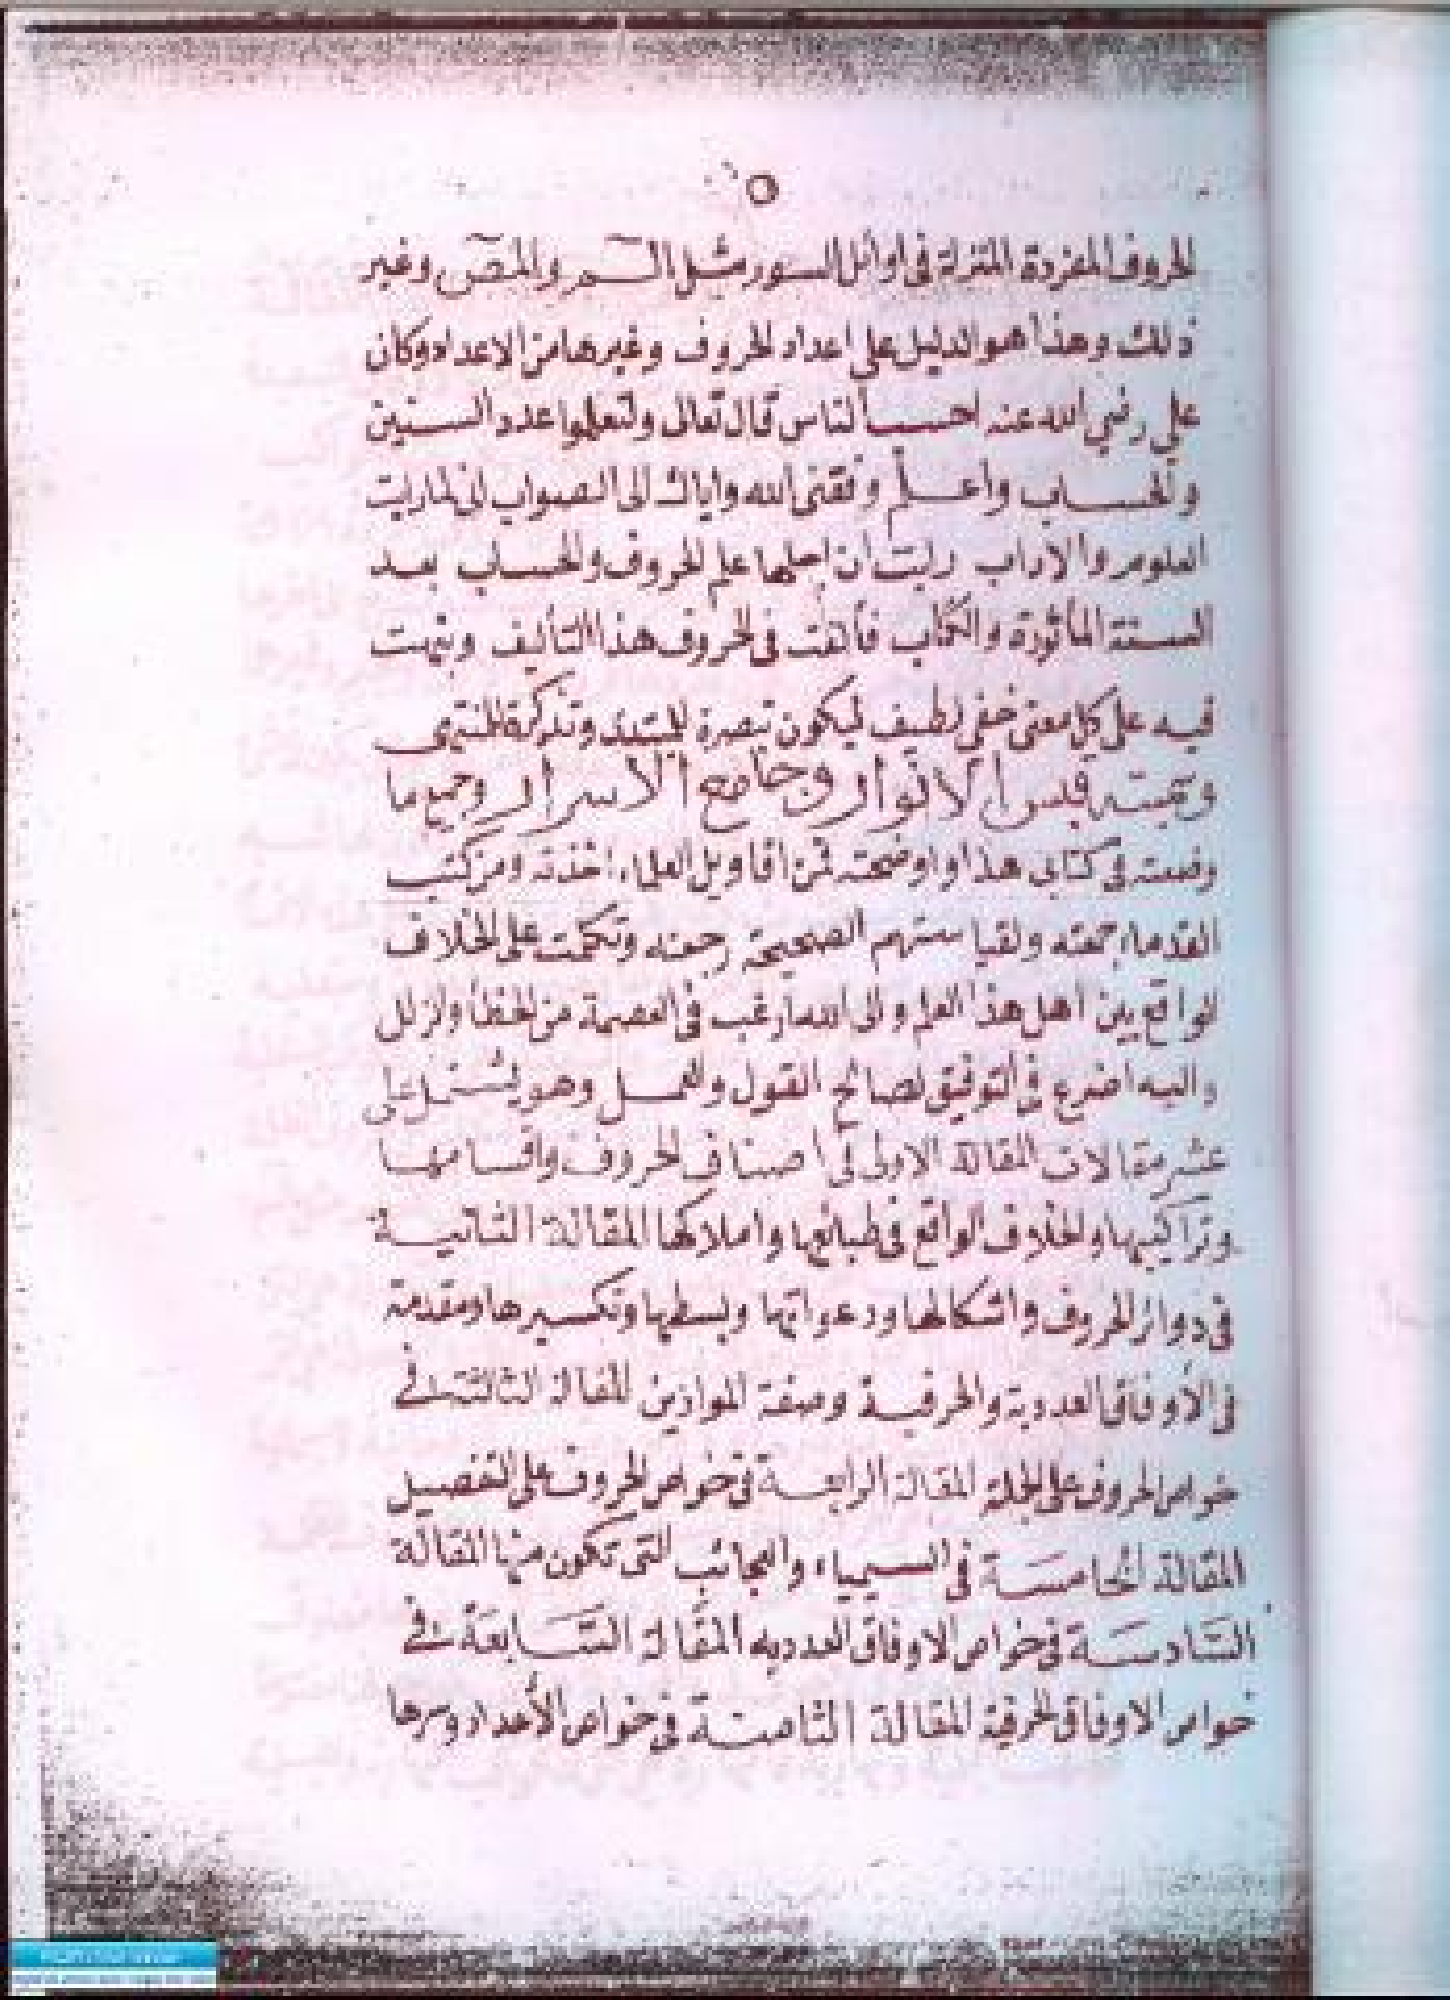 ٥
الحروف المفردة المنزلة فى اوائل السور مثل الـــم والمص وغير
ذلك وهذا هو الدليل على اعداد الحروف وغيرها من الاعداد وكان
على رضى الله عنه احسب الناس قال تعالى ولتعلموا عدد السنين
والحساب واعلم وفقنى الله واياك الى الصواب انى لما رايت
العلوم والاداب رايت ان اجلها علم الحروف والحساب بعد
السنة المأثورة والكتاب فألفت فى الحروف هذا التأليف ونبهت
فيه على كل معنى خفى لطيف ليكون تبصرة للمبتدى وتذكرة للمنتهى
وسميته قبس الانوار وجامع الاسرار وجميع ما
وضعته فى كتابى هذا واوضحته فمن اقاويل العلماء اخذته ومن كتب
القدماء جمعته ولقياستهم الصحيحة رجعته وتكلمت على الخلاف
الواقع بين اهل هذا العلم والى الله ارغب فى العصمة من الخطأ والزلل
واليه اضرع فى التوفيق لصالح القول والعمل وهو يشتمل على
عشر مقالات المقالة الاولى فى اصناف الحروف واقسامها
وتراكيبها والخلاف الواقع فى طبائعها واملاكها المقالة الثانية
فى دوائر الحروف واشكالها ودعواتها وبسطها وتكسيرها ومقدمة
فى الأوفاق العددية والحرفية وصفة الموازين المقالة الثالثة فى
خواص الحروف على الجملة المقالة الرابعة فى خواص الحروف على التفصيل
المقالة الخامسة فى السيمياء والعجائب التى تكون منها المقالة
السادسة فى خواص الاوفاق العدديه المقالة السابعة فى
خواص الاوفاق الحرفية المقالة الثامنة فى خواص الأعداد وسرها